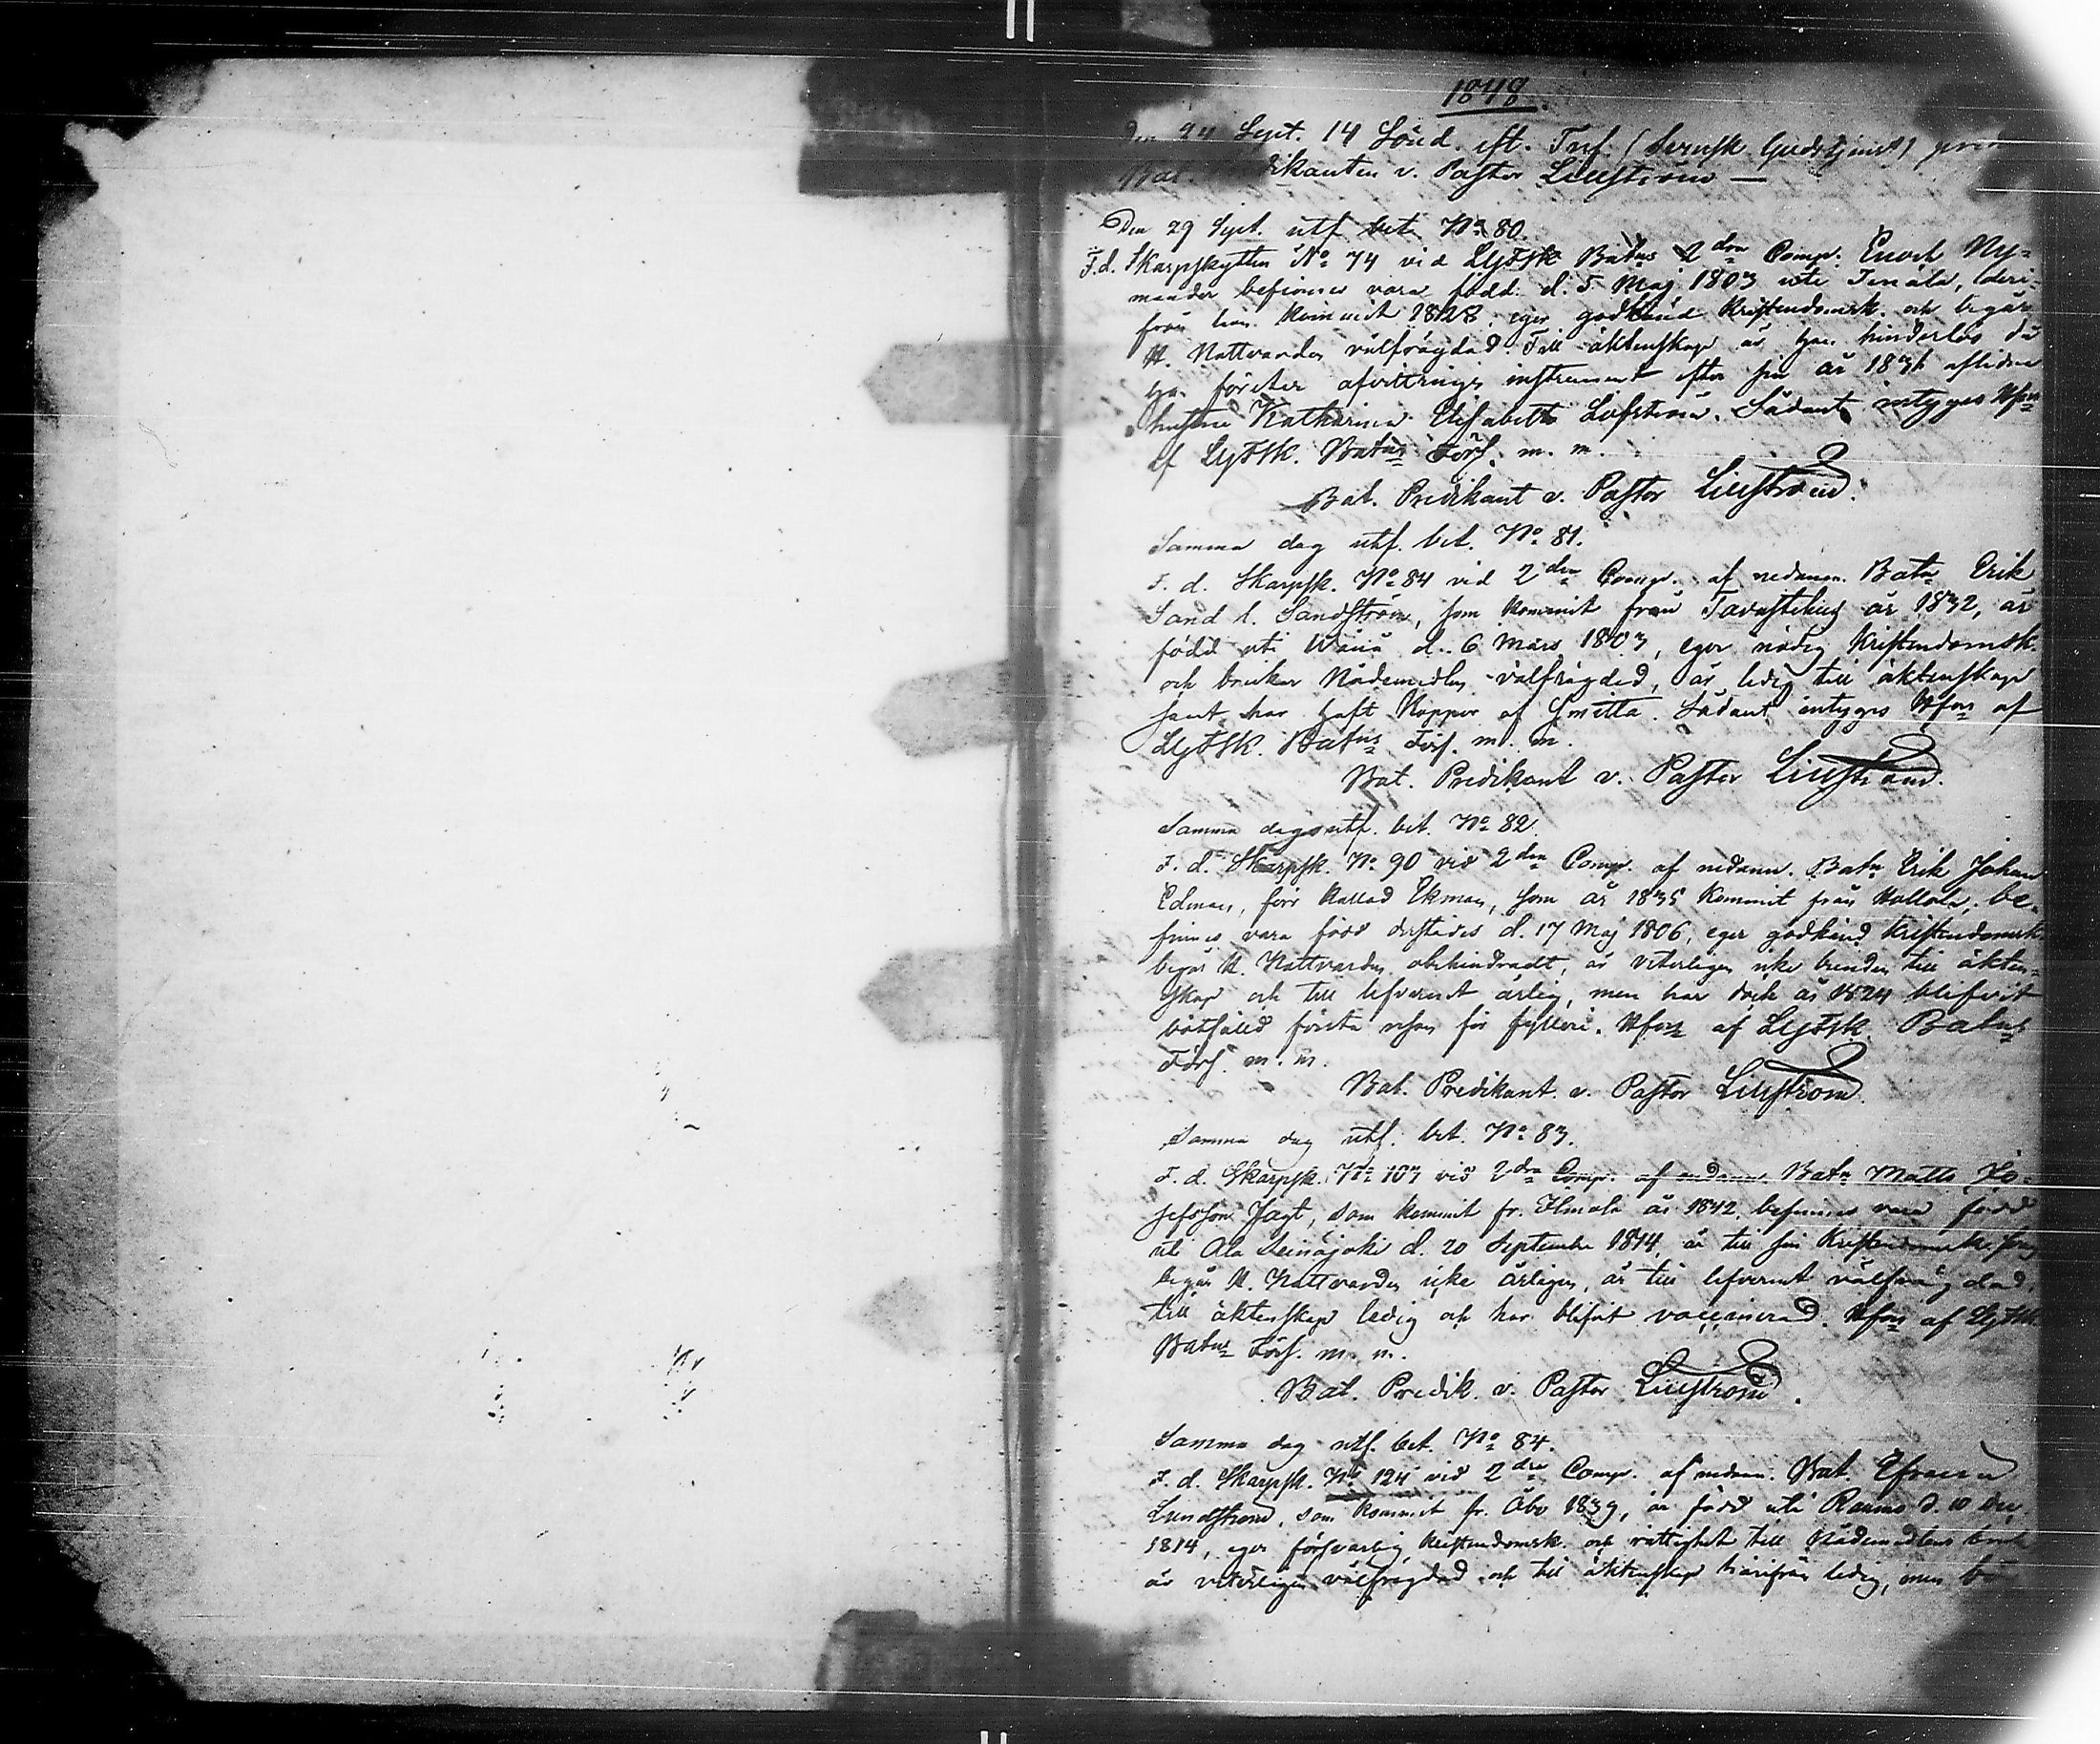 1848.
Den 24 Sept. 14 Sönd. eft. Tref. (Svensk Gudstjenst) pred
Bat. Predikanten v. Pastor Liljeström —
Den 29 Sept. utf. bet. No 80.
F.d. Skarpskytten No 74 vid LgFSk. Batns 2dra Comp. Enoch Ny-
mander befinnes vara född d. 5 Maj 1803 uti Tenala, deri-
från han kommit 1828, eger godkänd Kristendomsk. och begår
H. Nattvarden välfrägdad. Till äktenskap är han hinderlös då
han företer afvittrings instrument efter sin år 1836 aflidna
hustru Katharina Elisabeth Löfström. Sådant intygas Hfors
af LgFSk. Batns Förs. m. m.
Bat. Predikant v. Pastor Liljeström.
Samma dag utf. bet. No 81.
F. d. Skarpsk. No 84 vid 2dra Comp. af nedann. Batn Erik
Sand l. Sandström, som kommit från Tavastehus år 1832, är
född uti Wånå d. 6 Mars 1803, eger nödig Kristendomsk.
och brukar Nådemedlen välfrägdad, är ledig till äktenskap
samt har haft Koppor af Smitta. Sådant intygas Hfors af
LgFSk. Batns Förs. m. m.
Bat. Predikant v. Pastor Liljeström.
Samma dag utf. bet. No 82.
F. d. Skarpsk. No 90 vid 2dra Comp. af nedann. Batn Erik Johan
Edman, förr kallad Ekman, som år 1835 kommit från Hollola, be-
finnes vara född derstädes d. 17 Maj 1806, eger godkänd Kristendomsk.
begår H. Nattvarden obehindradt, är veterligen icke bunden till äkten-
skap och till lefvernet ärlig, men har dock år 1824 blifvit
botfälld första resan för fylleri. Hfors af LgFSk. Batns
Förs. m. m.
Bat. Predikant v. Pastor Liljeström.
Samma dag utf. bet. No 83.
F. d. Skarpsk. No 103 vid 2dra Comp. af nedann. Batn Matts Jo-
sefsson Jagt, som kommit fr. Ilmola år 1842, befinnes vara född
uti Ala Seinäjoki d. 20 September 1814, är till sin Kristendomsk. svag
begår H. Nattvarden icke årligen, är till lefvernet välfrägdad,
till äktenskap ledig och har blifvit vaccinerad. Hfors af LgFSk.
Batns Förs. m. m.
Bat. Predik. v. Pastor Liljeström.
Samma dag utf. bet. No 84.
F. d. Skarpsk. No 124 vid 2dra Comp. af nedann. Bat. Efraim
Lundström, som kommit fr. Åbo 1839, är född uti Raumo d. 10 Dec.
1814, eger försvarlig Kristendomsk. och rättighet till Nådemedlens bruk
är veterligen välfrägdad och till äktenskap härifrån ledig, men